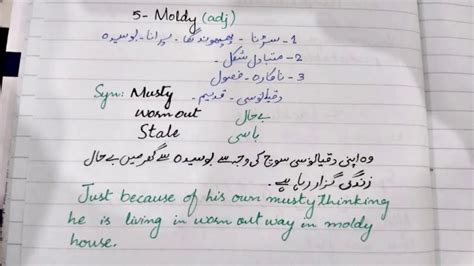 5- Moldy (adj)
1- سڑنا - پھپھوندلگنا - پرانا - بوسیدہ
2- متبادل شکل -
3 - ناکارہ - فضول
Syn: Musty دقیانوسی - قدیم -
Worn out بے حال
Stale باسی
وہ اپنی دقیانوسی سوچ کی وجہ سے بوسیدہ سے گھر میں بے حال
زندگی گزار رہا ہے -
Just because of his own musty thinking
he is living in worn out way in moldy
house.